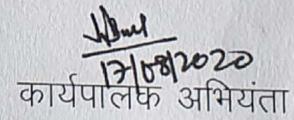 17/08/2020
कार्यपालक अभियंता